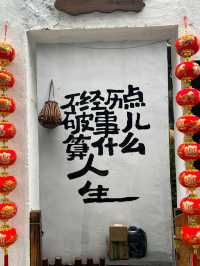 不经历点
破事儿
算什么
人
生